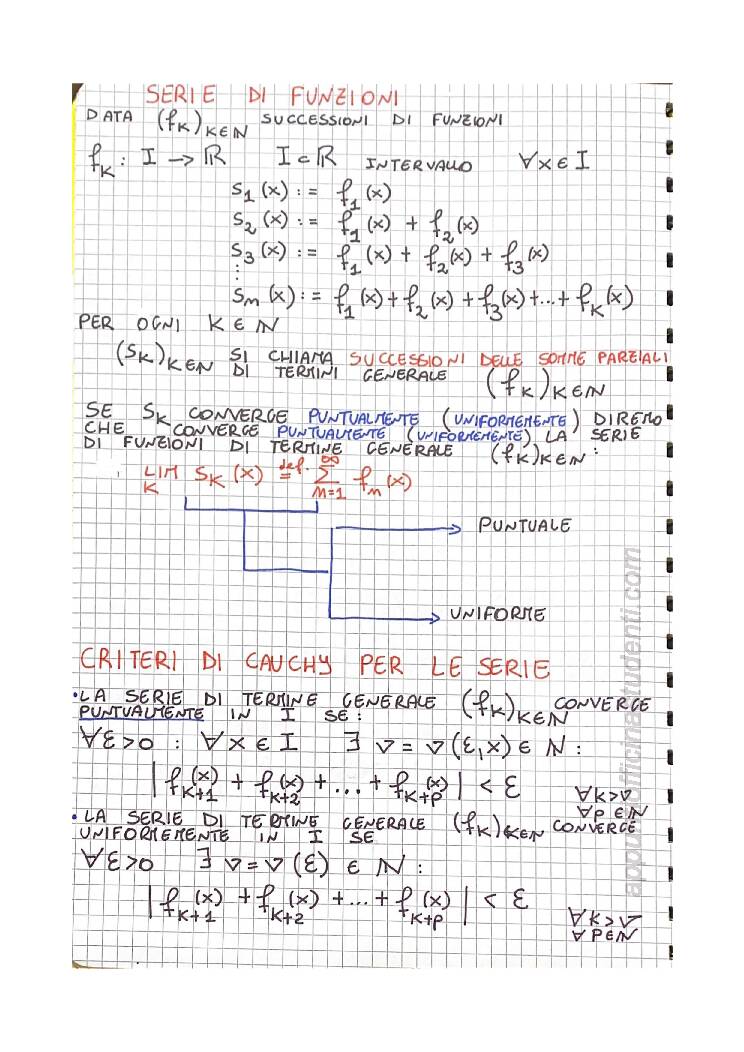 SERIE DI FUNZIONI
DATA (fk)k∈N SUCCESSIONI DI FUNZIONI
fk : I → ℝ I ⊂ ℝ INTERVALLO ∀x ∈ I
S1(x) := f1(x)
S2(x) := f1(x) + f2(x)
S3(x) := f1(x) + f2(x) + f3(x)
⋮
Sm(x) := f1(x) + f2(x) + f3(x) + ... + fk(x)
PER OGNI K ∈ N
(Sk)k∈N SI CHIAMA SUCCESSIONI DELLE SOMME PARZIALI
DI TERMINI GENERALE (fk)k∈N
SE Sk CONVERGE PUNTUALMENTE (UNIFORMEMENTE) DIREMO
CHE CONVERGE PUNTUALMENTE (UNIFORMEMENTE) LA SERIE
DI FUNZIONI DI TERMINE GENERALE (fk)k∈N :
LIM K Sk(x) def. = ∑ M=1 ∞ fm(x)
PUNTUALE
UNIFORME
CRITERI DI CAUCHY PER LE SERIE
• LA SERIE DI TERMINE GENERALE (fk)k∈N CONVERGE
PUNTUALMENTE IN I SE :
∀ε>0 : ∀x ∈ I ∃ ν = ν(ε,x) ∈ N :
| fk+1(x) + fk+2(x) + ... + fk+p(x) | < ε ∀k>ν
∀p ∈ N
• LA SERIE DI TERMINE GENERALE (fk)k∈N CONVERGE
UNIFORMEMENTE IN I SE
∀ε>0 ∃ ν = ν(ε) ∈ N :
| fk+1(x) + fk+2(x) + ... + fk+p(x) | < ε ∀k>ν
∀p∈N
appuntiofficinastudenti.com